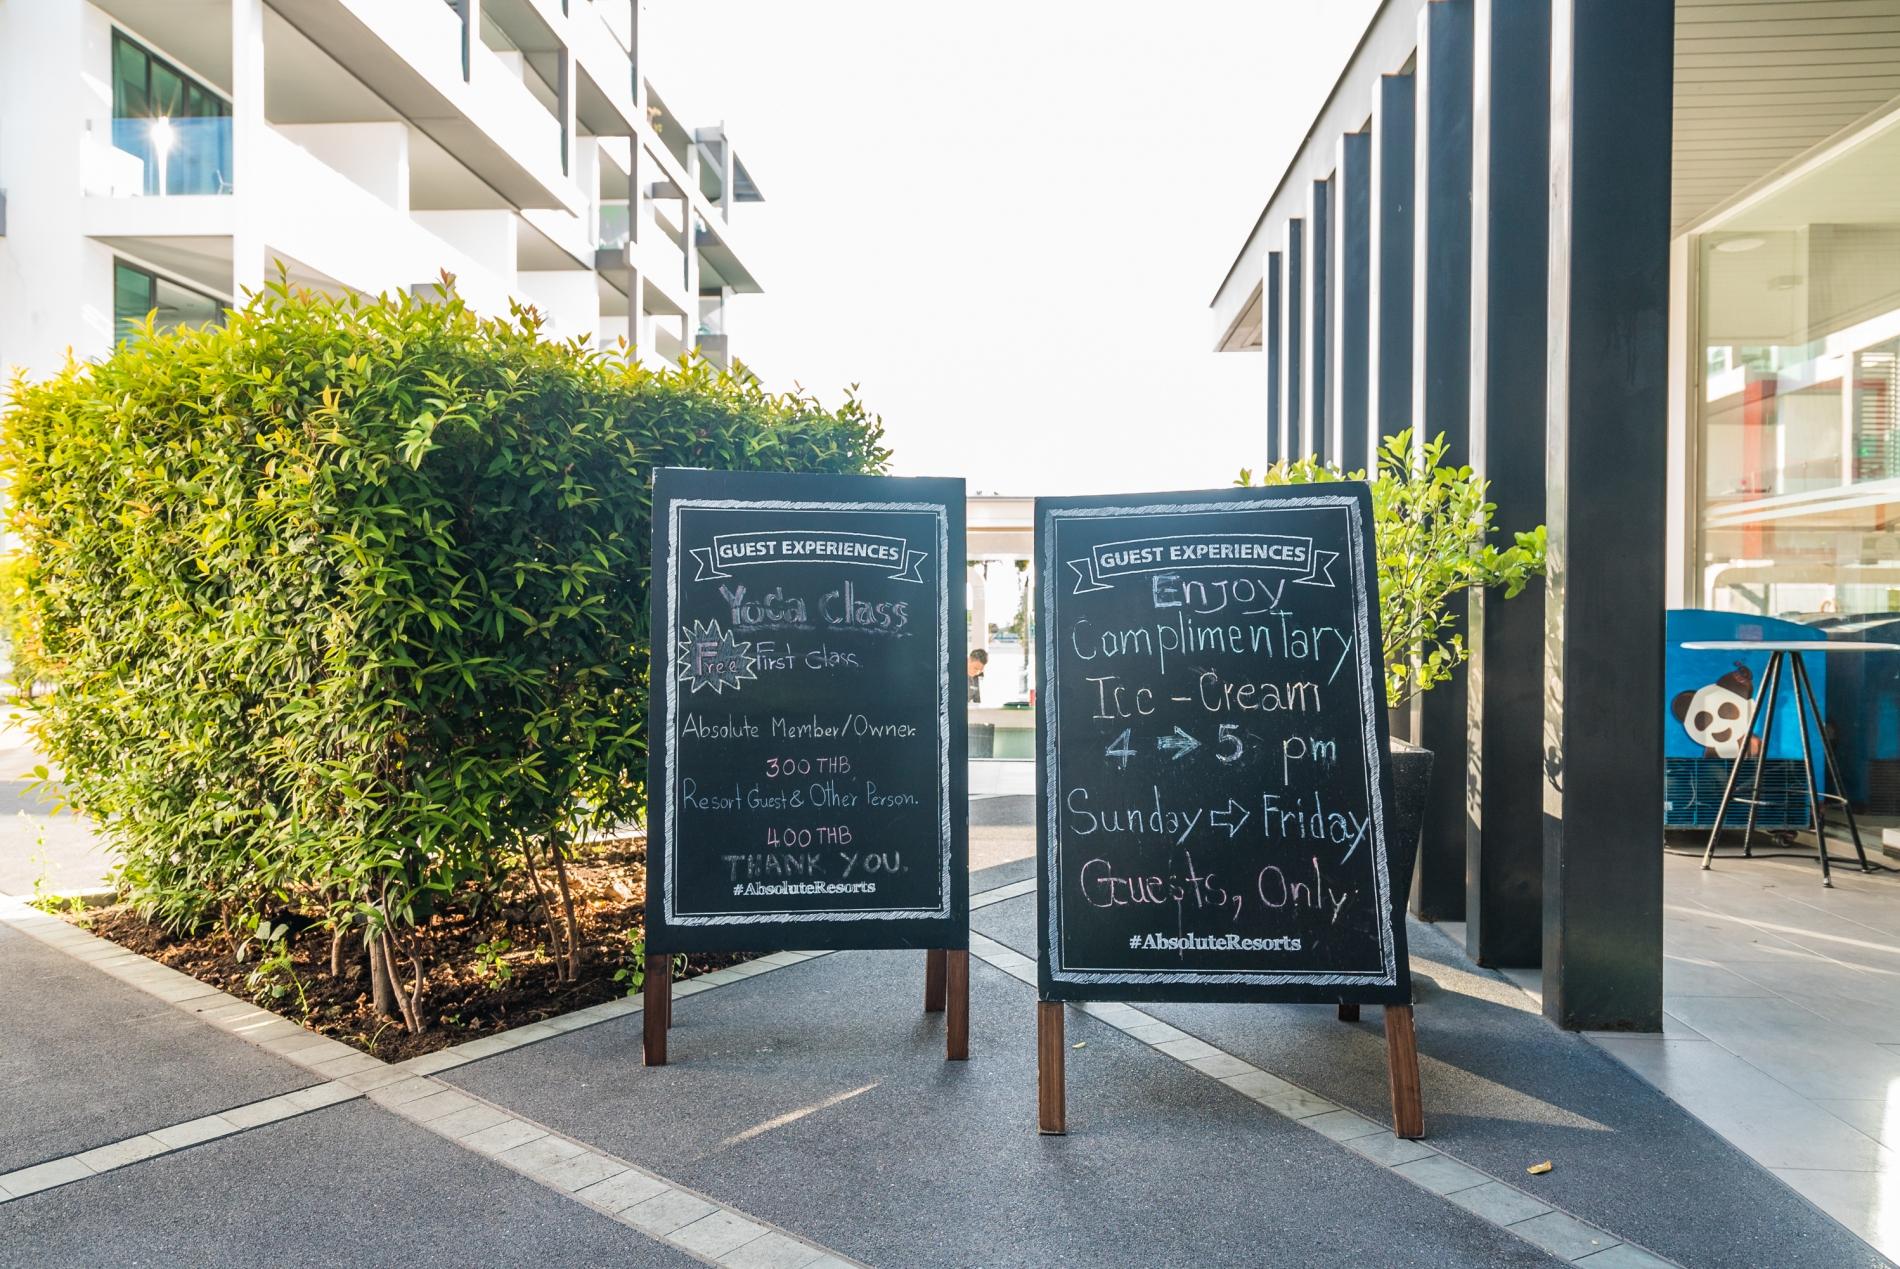 GUEST EXPERIENCES
Yoga Class
Free First Class
Absolute Member/Owner.
300 THB
Resort Guest & Other Person.
400 THB
THANK YOU.
#AbsoluteResorts
GUEST EXPERIENCES
Enjoy
Complimentary
Ice-Cream
4 ⇨ 5 pm
Sunday ⇨ Friday
Guests, Only
#AbsoluteResorts